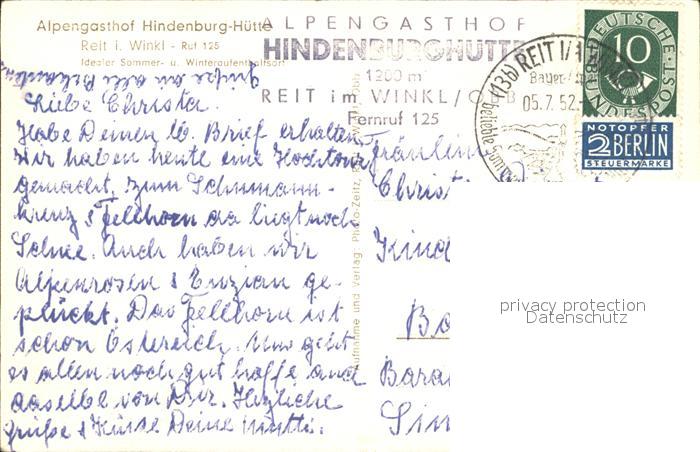 Alpengasthof Hindenburg-Hütte
Reit i. Winkl - Ruf 125
Idealer Sommer- u. Winteraufenthaltsort
ALPENGASTHOF
HINDENBURGHÜTTE
1200 m
REIT im WINKL/OBB
Fernruf 125
(13b) REIT I/
05.7.52
DEUTSCHE
BUNDESPOST
10
NOTOPFER
2 BERLIN
STEUERMARKE
Grüße an alle Bekannten
Liebe Christa.
Habe Deinen lb. Brief erhalten
Wir haben heute eine Hochtour
gemacht, zum Schumann-
kreuz & Fellhorn da liegt noch
Schnee. Auch haben wir
Alpenrosen & Enzian ge-
pflückt. Das Fellhorn ist
schon Östereich. Uns geht
es allen noch gut hoffe auch
dasselbe von Dir. Herzliche
Grüße & Küsse Deine Mutti.
Aufnahme und Verlag: Photo-Zeitz,
Fräulein
Christ
Kind
Bo
Bara
Sin
privacy protection
Datenschutz